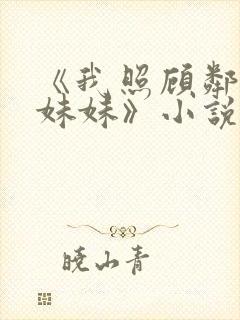 《我照顾鄰
妹妹》小說
曉山青